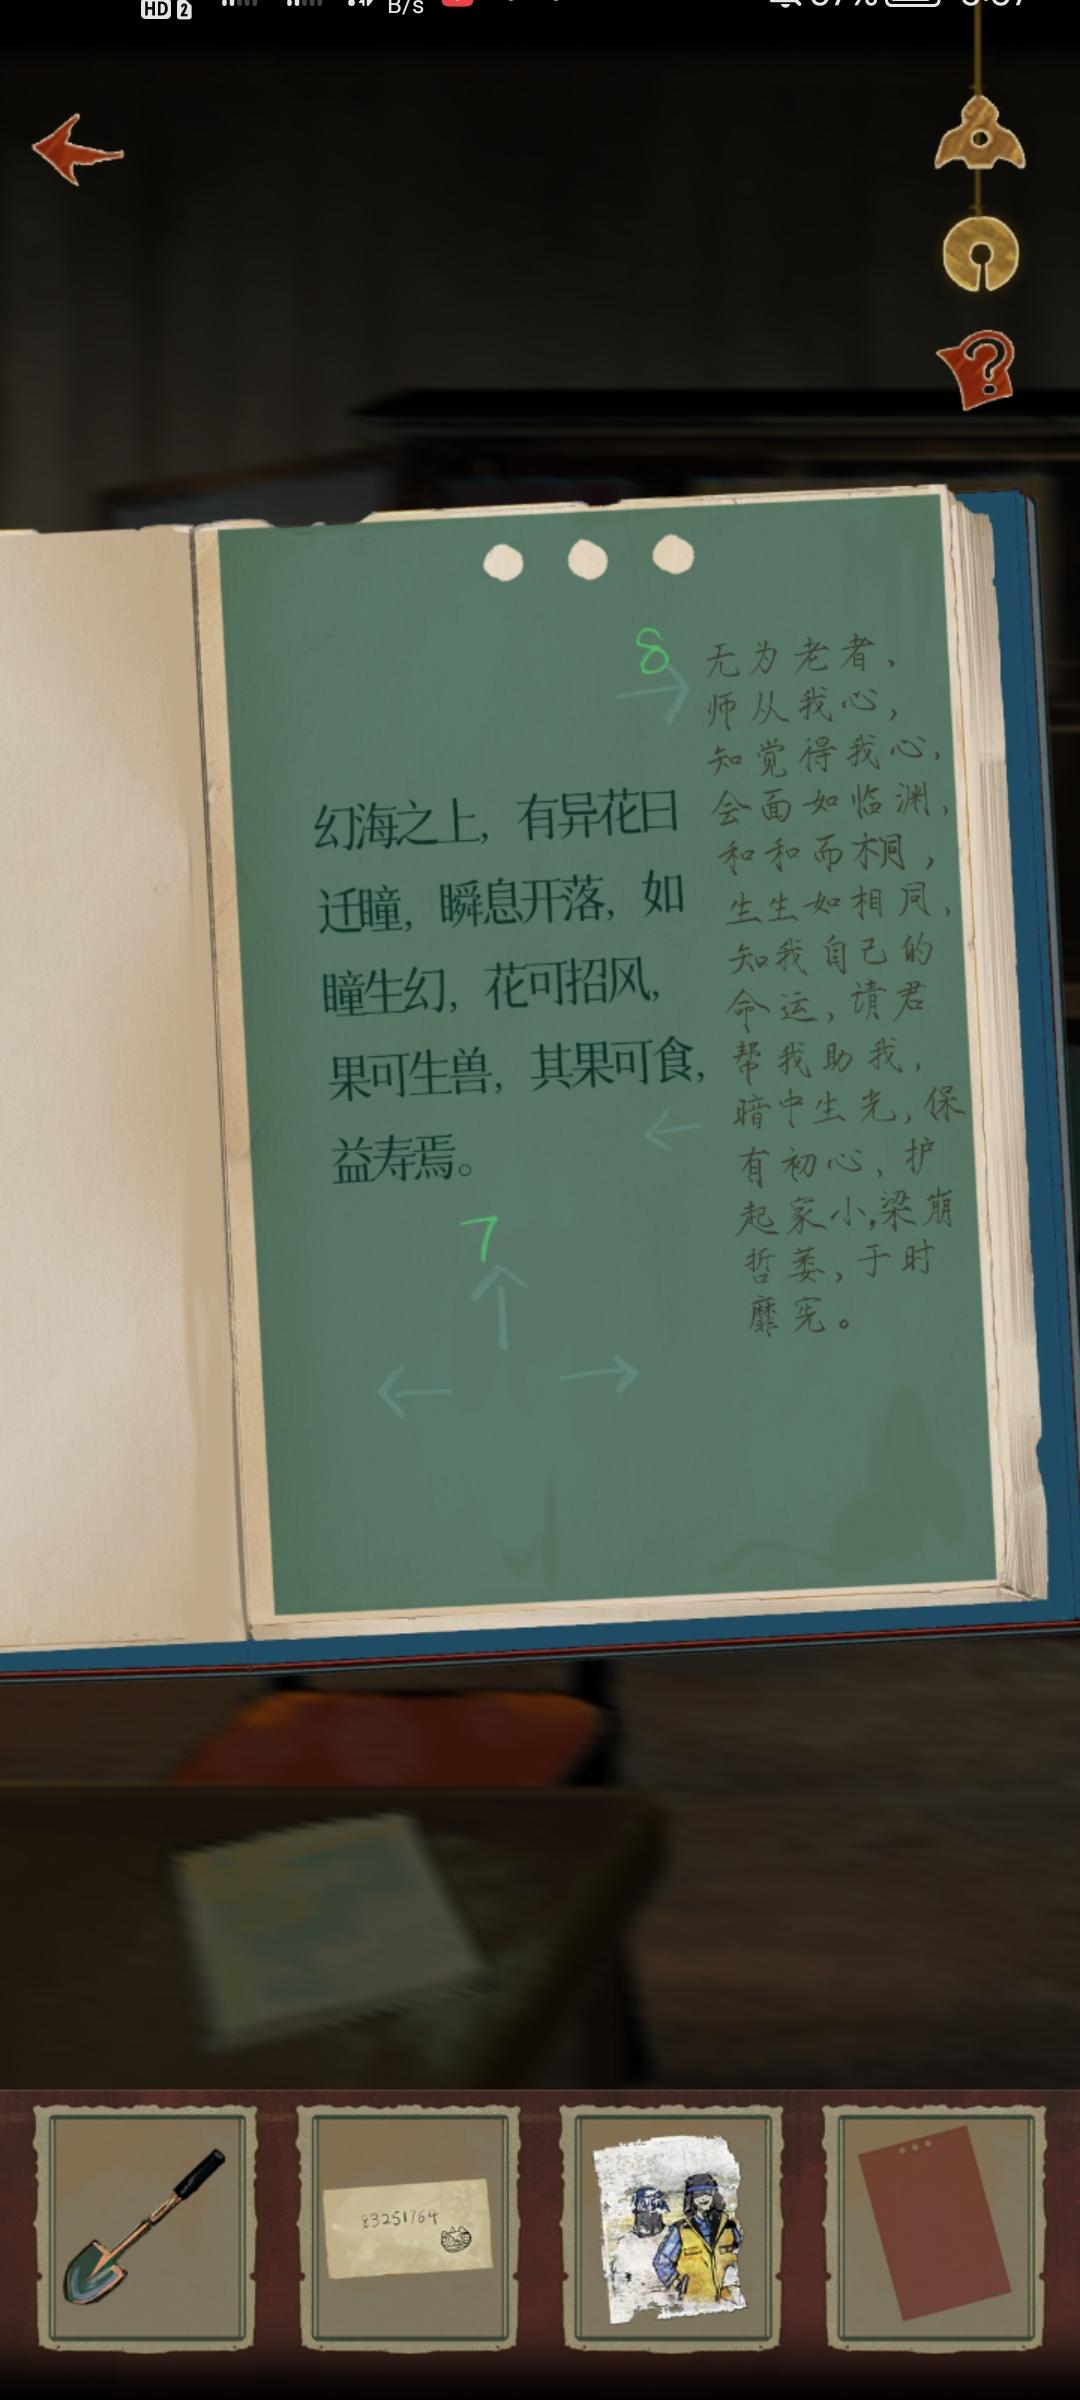 HD 2
B/s
8
无为老者，
师从我心，
知觉得我心，
会面如临渊，
和和而桐，
生生如相同，
知我自己的
命运，请君
帮我助我，
暗中生光，保
有初心、护
起家小，梁崩
哲萎，于时
靡宪。
幻海之上，有异花曰
迁瞳，瞬息开落，如
瞳生幻，花可招风，
果可生兽，其果可食，
益寿焉。
7
83251764